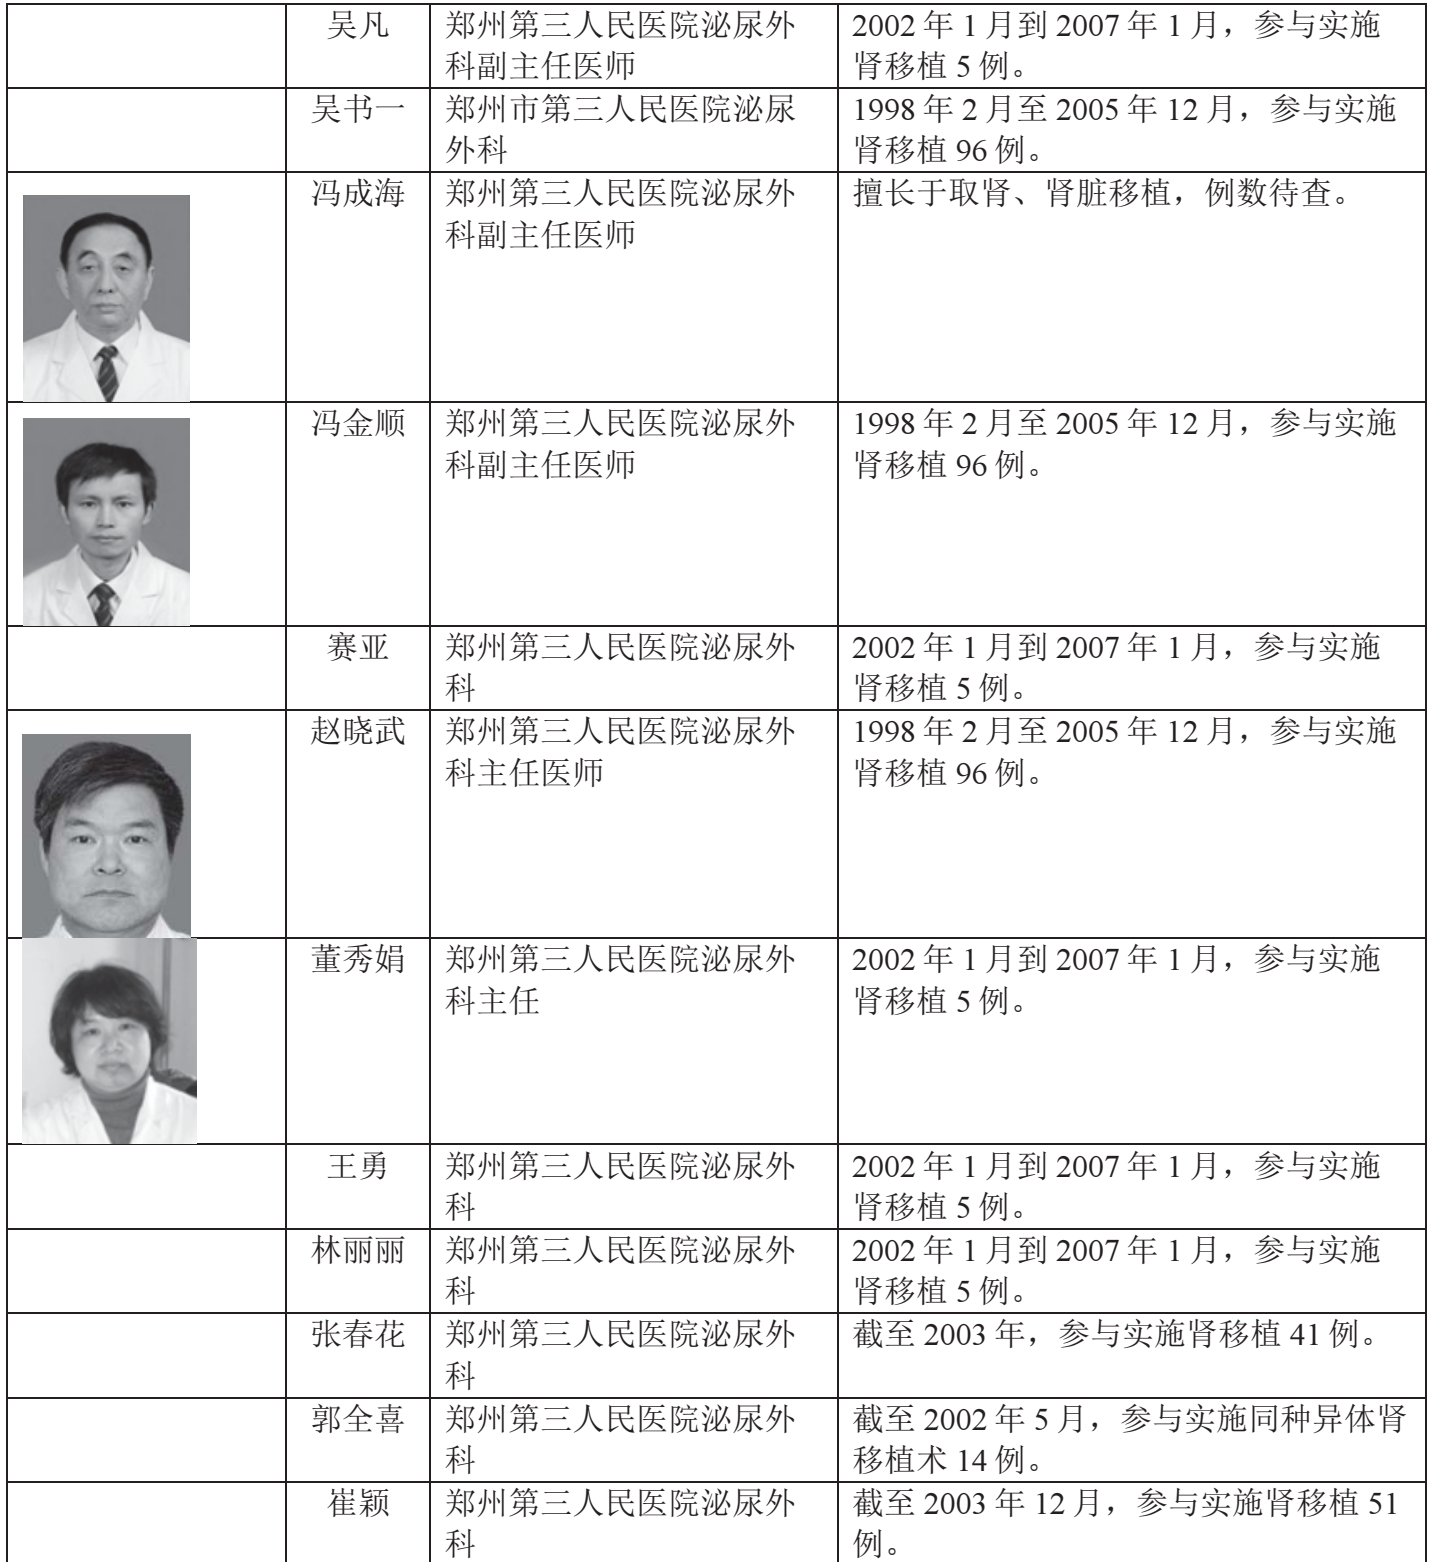 吴凡
郑州第三人民医院泌尿外
科副主任医师
2002 年 1 月到 2007 年 1 月，参与实施
肾移植 5 例。
吴书一
郑州市第三人民医院泌尿
外科
1998 年 2 月至 2005 年 12 月，参与实施
肾移植 96 例。
冯成海
郑州第三人民医院泌尿外
科副主任医师
擅长于取肾、肾脏移植，例数待查。
冯金顺
郑州第三人民医院泌尿外
科副主任医师
1998 年 2 月至 2005 年 12 月，参与实施
肾移植 96 例。
赛亚
郑州第三人民医院泌尿外
科
2002 年 1 月到 2007 年 1 月，参与实施
肾移植 5 例。
赵晓武
郑州第三人民医院泌尿外
科主任医师
1998 年 2 月至 2005 年 12 月，参与实施
肾移植 96 例。
董秀娟
郑州第三人民医院泌尿外
科主任
2002 年 1 月到 2007 年 1 月，参与实施
肾移植 5 例。
王勇
郑州第三人民医院泌尿外
科
2002 年 1 月到 2007 年 1 月，参与实施
肾移植 5 例。
林丽丽
郑州第三人民医院泌尿外
科
2002 年 1 月到 2007 年 1 月，参与实施
肾移植 5 例。
张春花
郑州第三人民医院泌尿外
科
截至 2003 年，参与实施肾移植 41 例。
郭全喜
郑州第三人民医院泌尿外
科
截至 2002 年 5 月，参与实施同种异体肾
移植术 14 例。
崔颖
郑州第三人民医院泌尿外
科
截至 2003 年 12 月，参与实施肾移植 51
例。